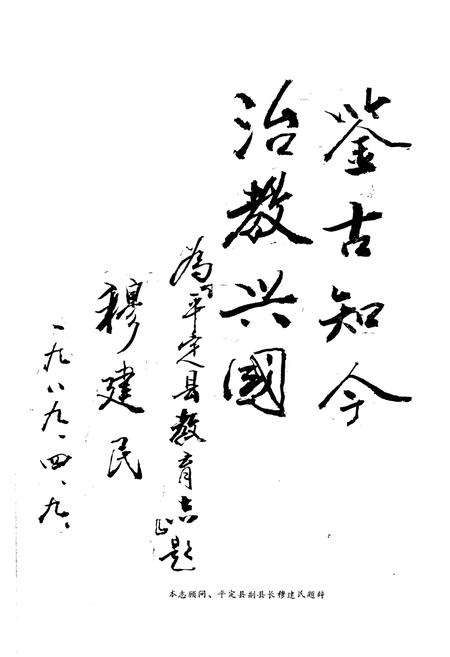 鉴古知今
治教兴國
为平定县教育志题
穆建民
一九八九、四、九、
本志顾问、平定县副县长穆建民题辞